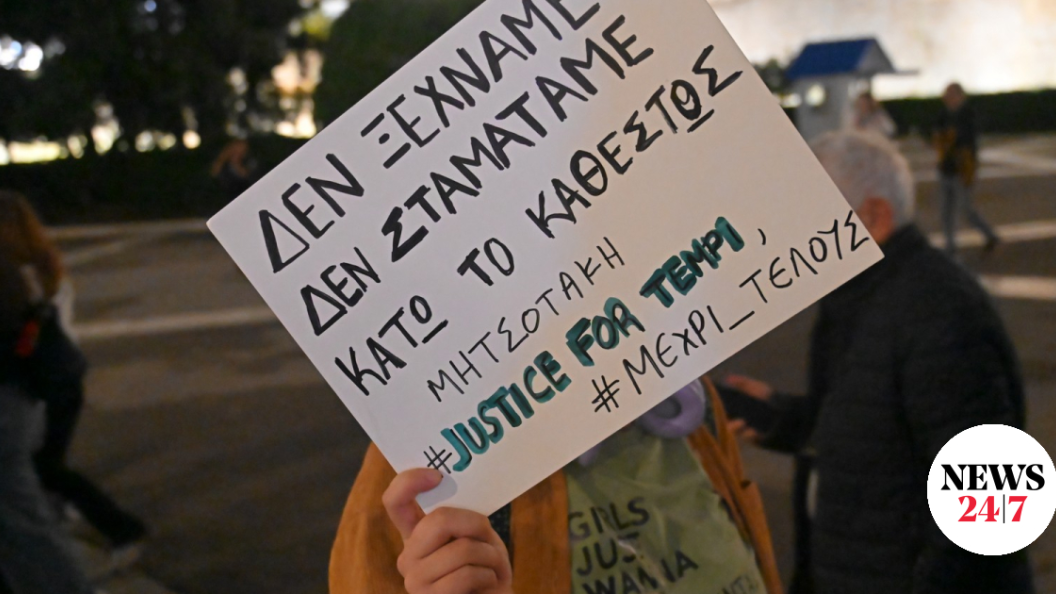 ΔΕΝ ΞΕΧΝΑΜΕ
ΔΕΝ ΣΤΑΜΑΤΑΜΕ
ΚΑΤΩ ΤΟ ΚΑΘΕΣΤΩΣ
ΜΗΤΣΟΤΑΚΗ
#JUSTICE FOR TEMPI,
#ΜΕΧΡΙ_ΤΕΛΟΥΣ
GIRLS
JUST
WANNA
NEWS
24|7